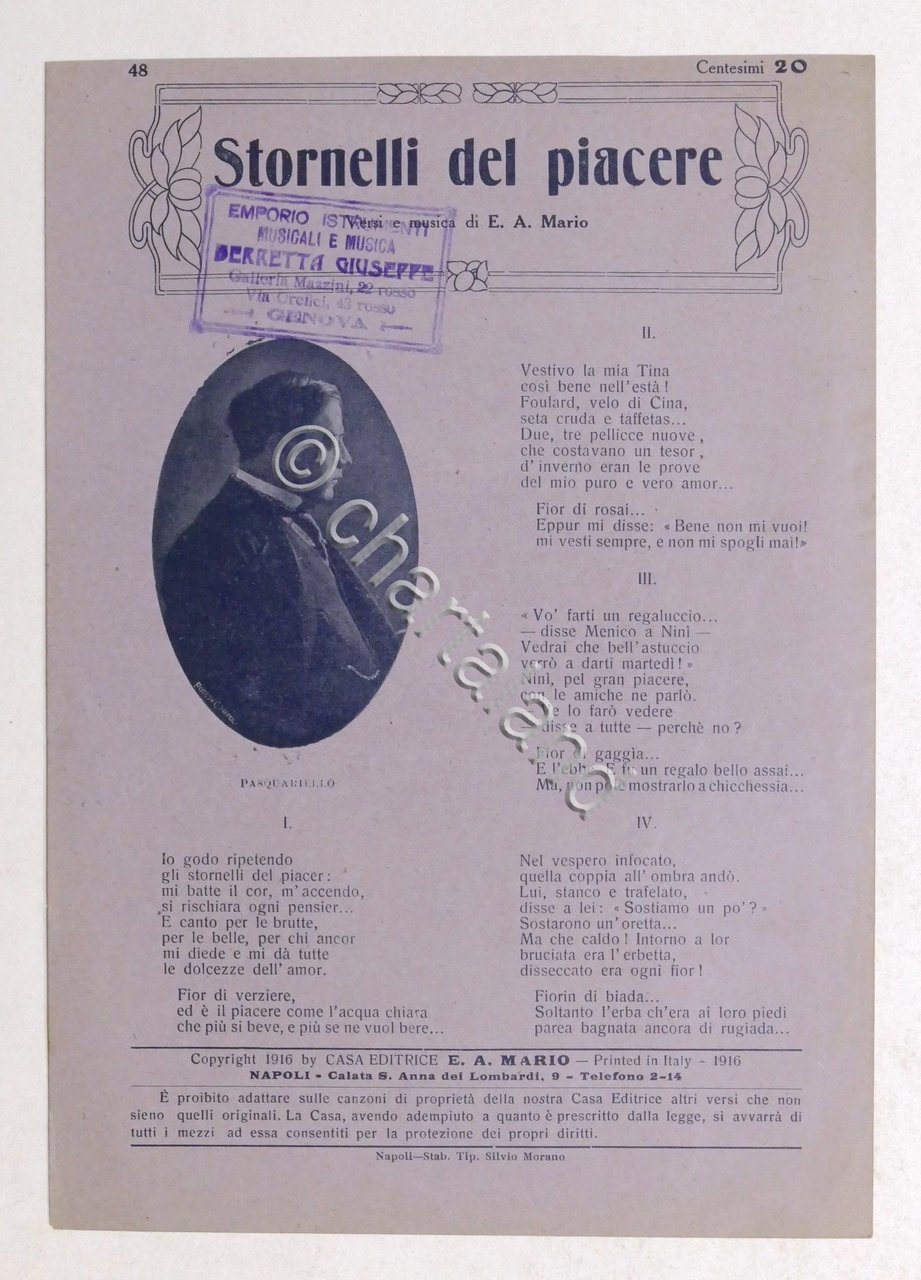 48
Centesimi 20
Stornelli del piacere
Versi e musica di E. A. Mario
EMPORIO ISTRUMENTI
MUSICALI E MUSICA
BERRETTA GIUSEPPE
Galleria Mazzini, 22 rosso
Via Orefici, 43 rosso
— GENOVA —
PASQUARIELLO
I.
Io godo ripetendo
gli stornelli del piacer:
mi batte il cor, m'accendo,
si rischiara ogni pensier...
E canto per le brutte,
per le belle, per chi ancor
mi diede e mi dà tutte
le dolcezze dell'amor.
Fior di verziere,
ed è il piacere come l'acqua chiara
che più si beve, e più se ne vuol bere...
II.
Vestivo la mia Tina
così bene nell'està!
Foulard, velo di Cina,
seta cruda e taffetas...
Due, tre pellicce nuove,
che costavano un tesor,
d'inverno eran le prove
del mio puro e vero amor...
Fior di rosai...
Eppur mi disse: «Bene non mi vuoi!
mi vesti sempre, e non mi spogli mai!»
III.
«Vo' farti un regaluccio...
— disse Menico a Ninì —
Vedrai che bell'astuccio
verrò a darti martedì!»
Ninì, pel gran piacere,
con le amiche ne parlò.
e lo farò vedere
— disse a tutte — perchè no?
Fior di gaggìa...
E l'ebbe. E fu un regalo bello assai...
Ma, non potè mostrarlo a chicchessia...
IV.
Nel vespero infocato,
quella coppia all'ombra andò.
Lui, stanco e trafelato,
disse a lei: «Sostiamo un po'?»
Sostarono un'oretta...
Ma che caldo! Intorno a lor
bruciata era l'erbetta,
disseccato era ogni fior!
Fiorin di biada...
Soltanto l'erba ch'era ai loro piedi
parea bagnata ancora di rugiada...
Copyright 1916 by CASA EDITRICE E. A. MARIO — Printed in Italy - 1916
NAPOLI - Calata S. Anna dei Lombardi, 9 - Telefono 2-14
È proibito adattare sulle canzoni di proprietà della nostra Casa Editrice altri versi che non
sieno quelli originali. La Casa, avendo adempiuto a quanto è prescritto dalla legge, si avvarrà di
tutti i mezzi ad essa consentiti per la protezione dei propri diritti.
Napoli—Stab. Tip. Silvio Morano
© chartaland